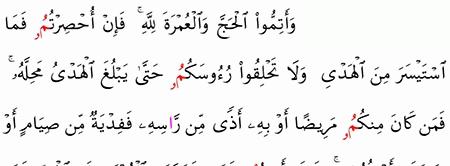 وَأَتِمُّواْ ٱلْحَجَّ وَٱلْعُمْرَةَ لِلَّهِۚ فَإِنْ أُحْصِرْتُمُۥ فَمَا
ٱسْتَيْسَرَ مِنَ ٱلْهَدْيِ وَلَا تَحْلِقُواْ رُءُوسَكُمُۥ حَتَّىٰ يَبْلُغَ ٱلْهَدْىُ مَحِلَّهُۥۚ
فَمَن كَانَ مِنكُمُۥ مَرِيضًا أَوْ بِهِۦ أَذًى مِّن رَّاسِهِۦ فَفِدْيَةٌ مِّن صِيَامٍ أَوْ